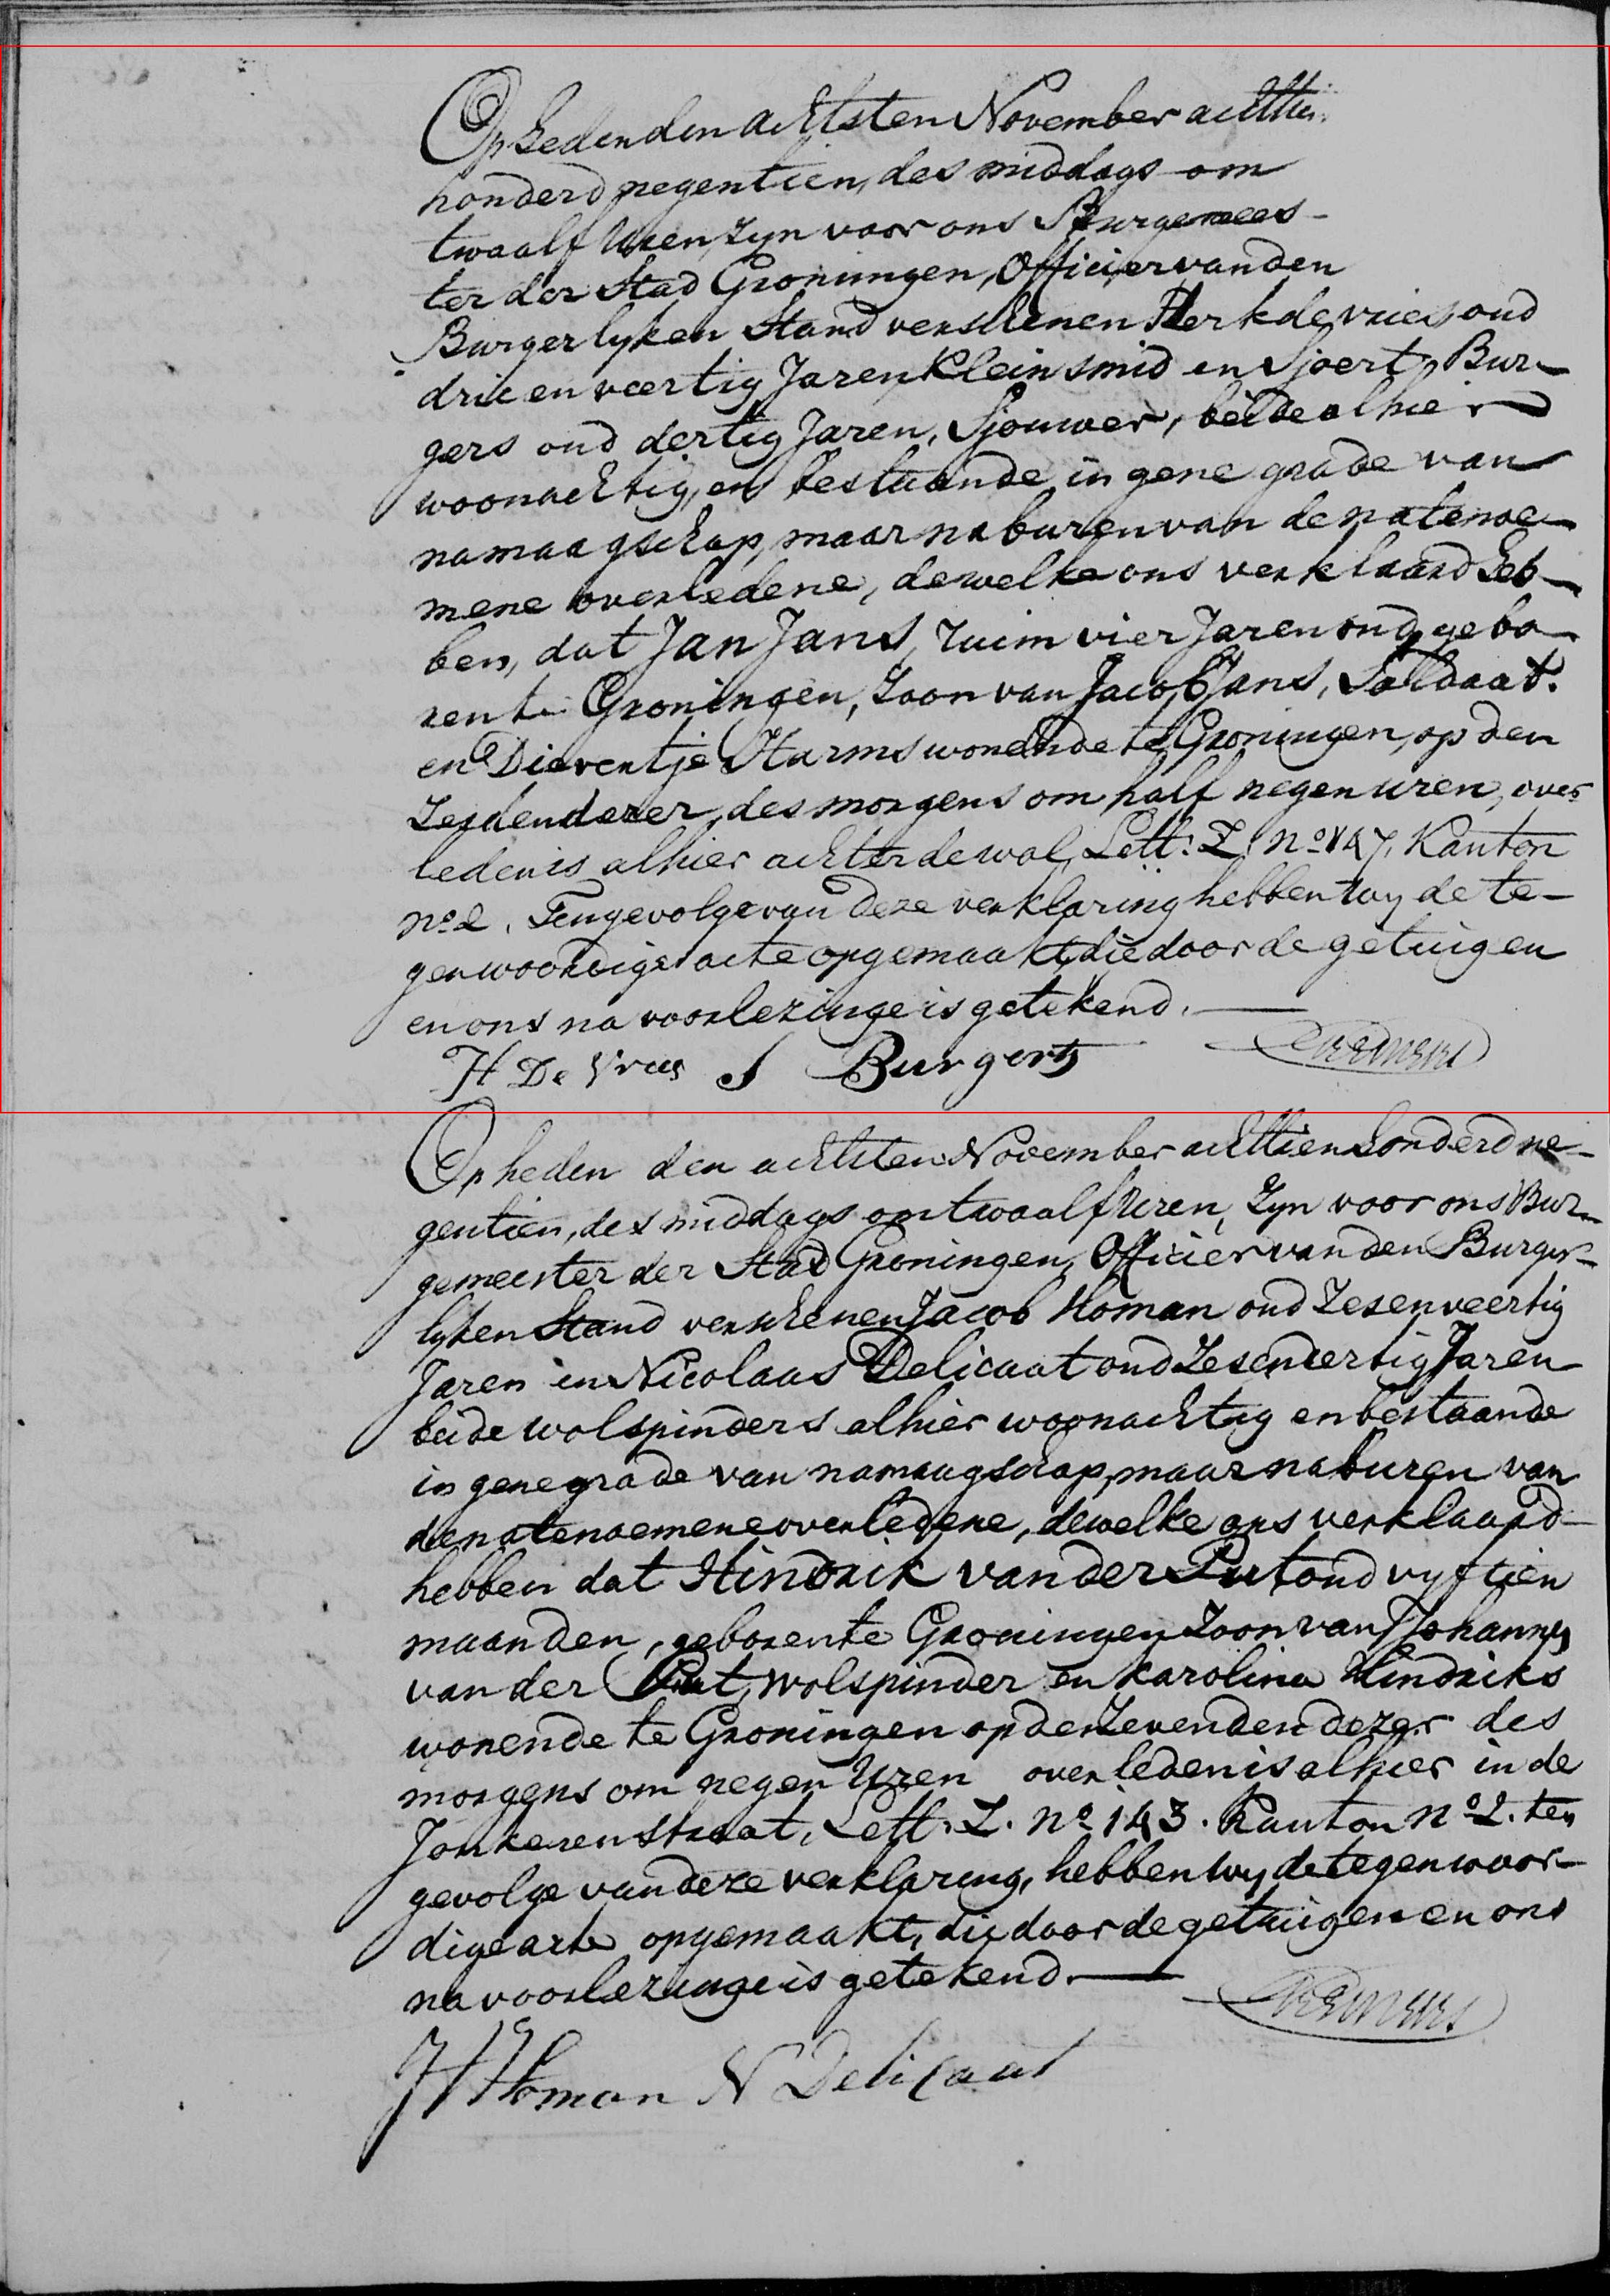 Op heden den achtsten November achttien
honderd negentien, des middags om
twaalf Uren, zyn voor ons Burgemees-
ter der Stad Groningen, Officier van den
Burgerlyken Stand verschenen Herk de vries oud
drie en veertig Jaren, Kleinsmid en Sjoert Bur-
gers oud dertig Jaren, Sjouwer, beide alhier
woonachtig, en bestaande in gene grade van
namaagschap, maar naburen van de natenoe-
mene overledene, dewelke ons verklaard heb-
ben, dat Jan Jans, ruim vier Jaren oud, gebo-
ren te Groningen, Zoon van Jacob Jans, Soldaat.
en Dieventje Harms wonende te Groningen, op den
Zesden dezer, des morgens om half negen uren, over
leden is alhier achter de wal, Lett: Z. No 147, Kanton
No 2. Tengevolge van deze verklaring hebben wy de te-
genwoordige acte opgemaakt, die door de getuigen
en ons na voorlezinge is getekend.
H De Vries S Burgerts
Op heden den achtsten November achttien honderd ne-
gentien, des middags om twaalf Uren, Zyn voor ons Bur-
gemeester der Stad Groningen, Officier van den Burger-
lyken Stand verschenen Jacob Homan oud Zesenveertig
Jaren en Nicolaas Delicaat oud Zesendertig Jaren
beide wolspinders alhier woonachtig en bestaande
in gene grade van namaagschap, maar naburen van
de natenoemene overledene, dewelke ons verklaard
hebben dat Hindrik van der Put oud vyftien
maanden, geboren te Groningen Zoon van Johannes
van der Put, wolspinder en Karolina Hindriks
wonende te Groningen op den Zevenden dezer des
morgens om negen Uren overleden is alhier in de
Jonkerenstraat, Lett. Z. No 143. Kanton No 2. ten
gevolge van deze verklaring, hebben wy de tegenwoor-
dige acte opgemaakt, die door de getuigen en ons
na voorlezinge is getekend.
J Homan N Delicaat